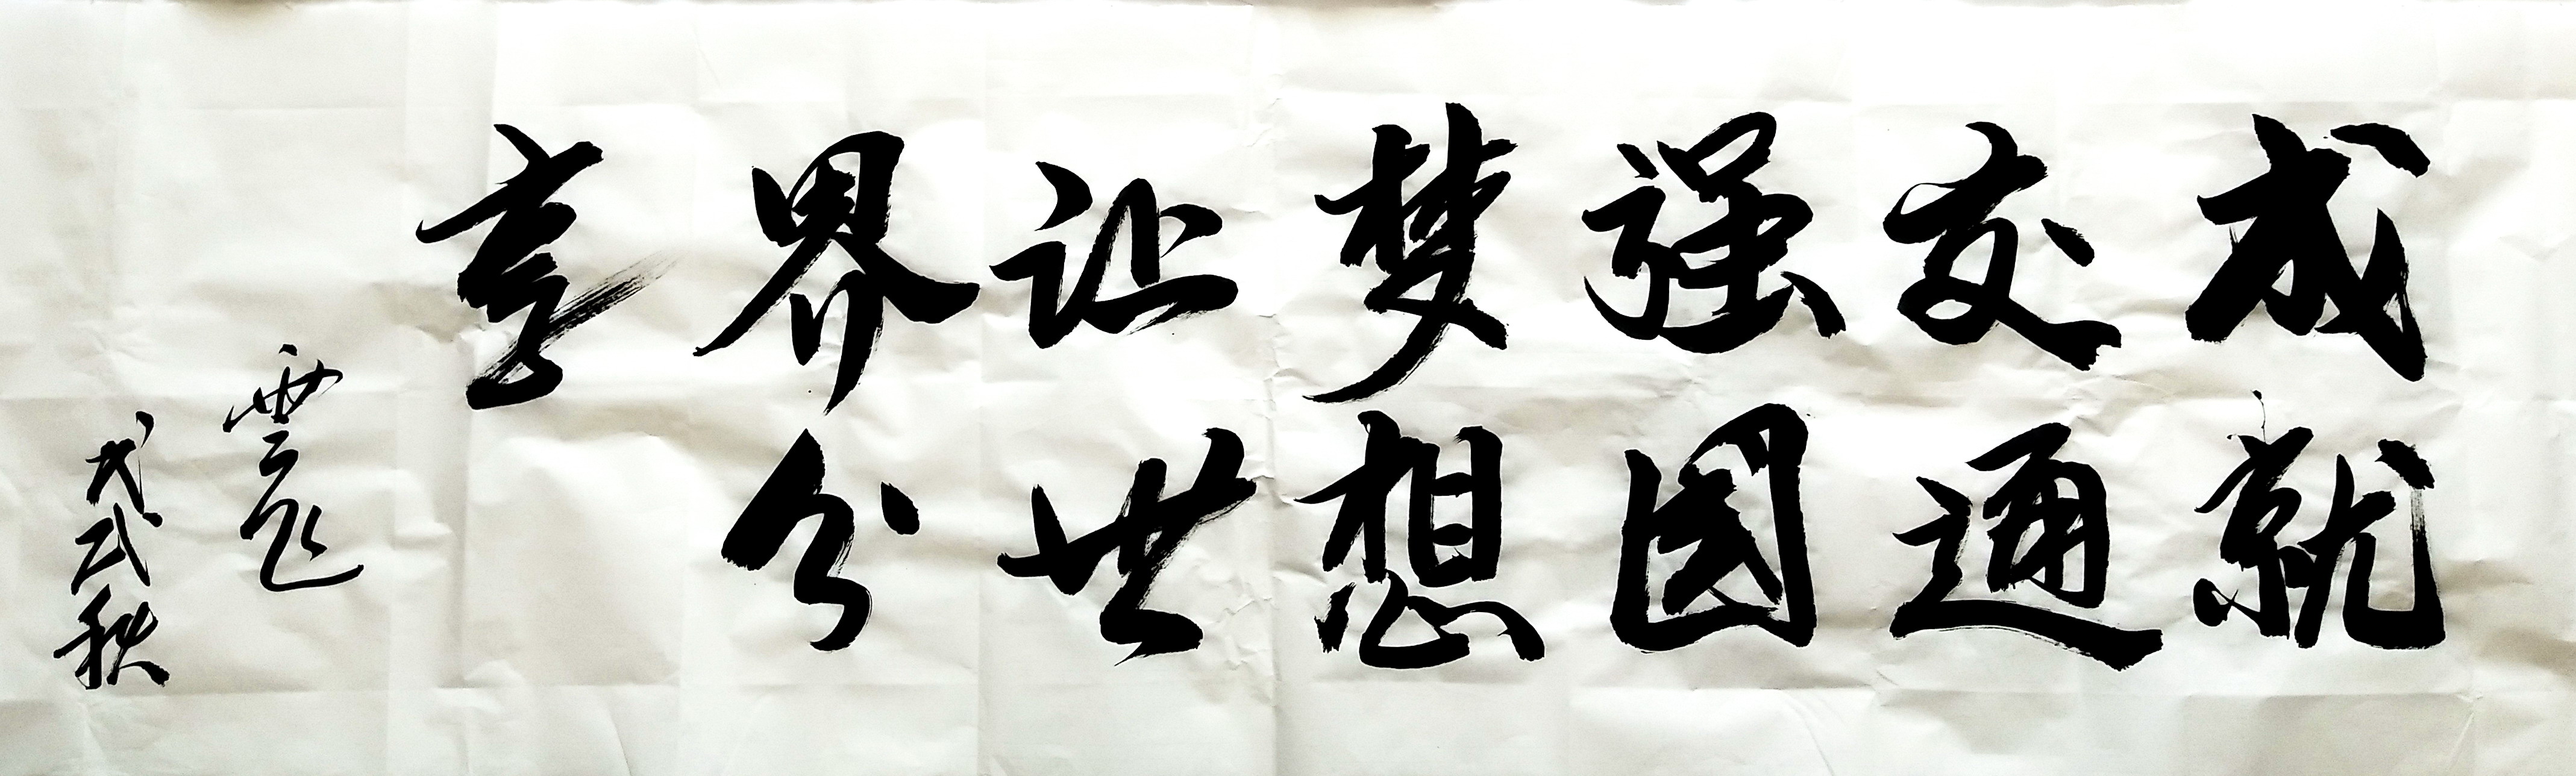 成就
交通
强國
梦想
让世
界分
享
雲飞
戊戌秋